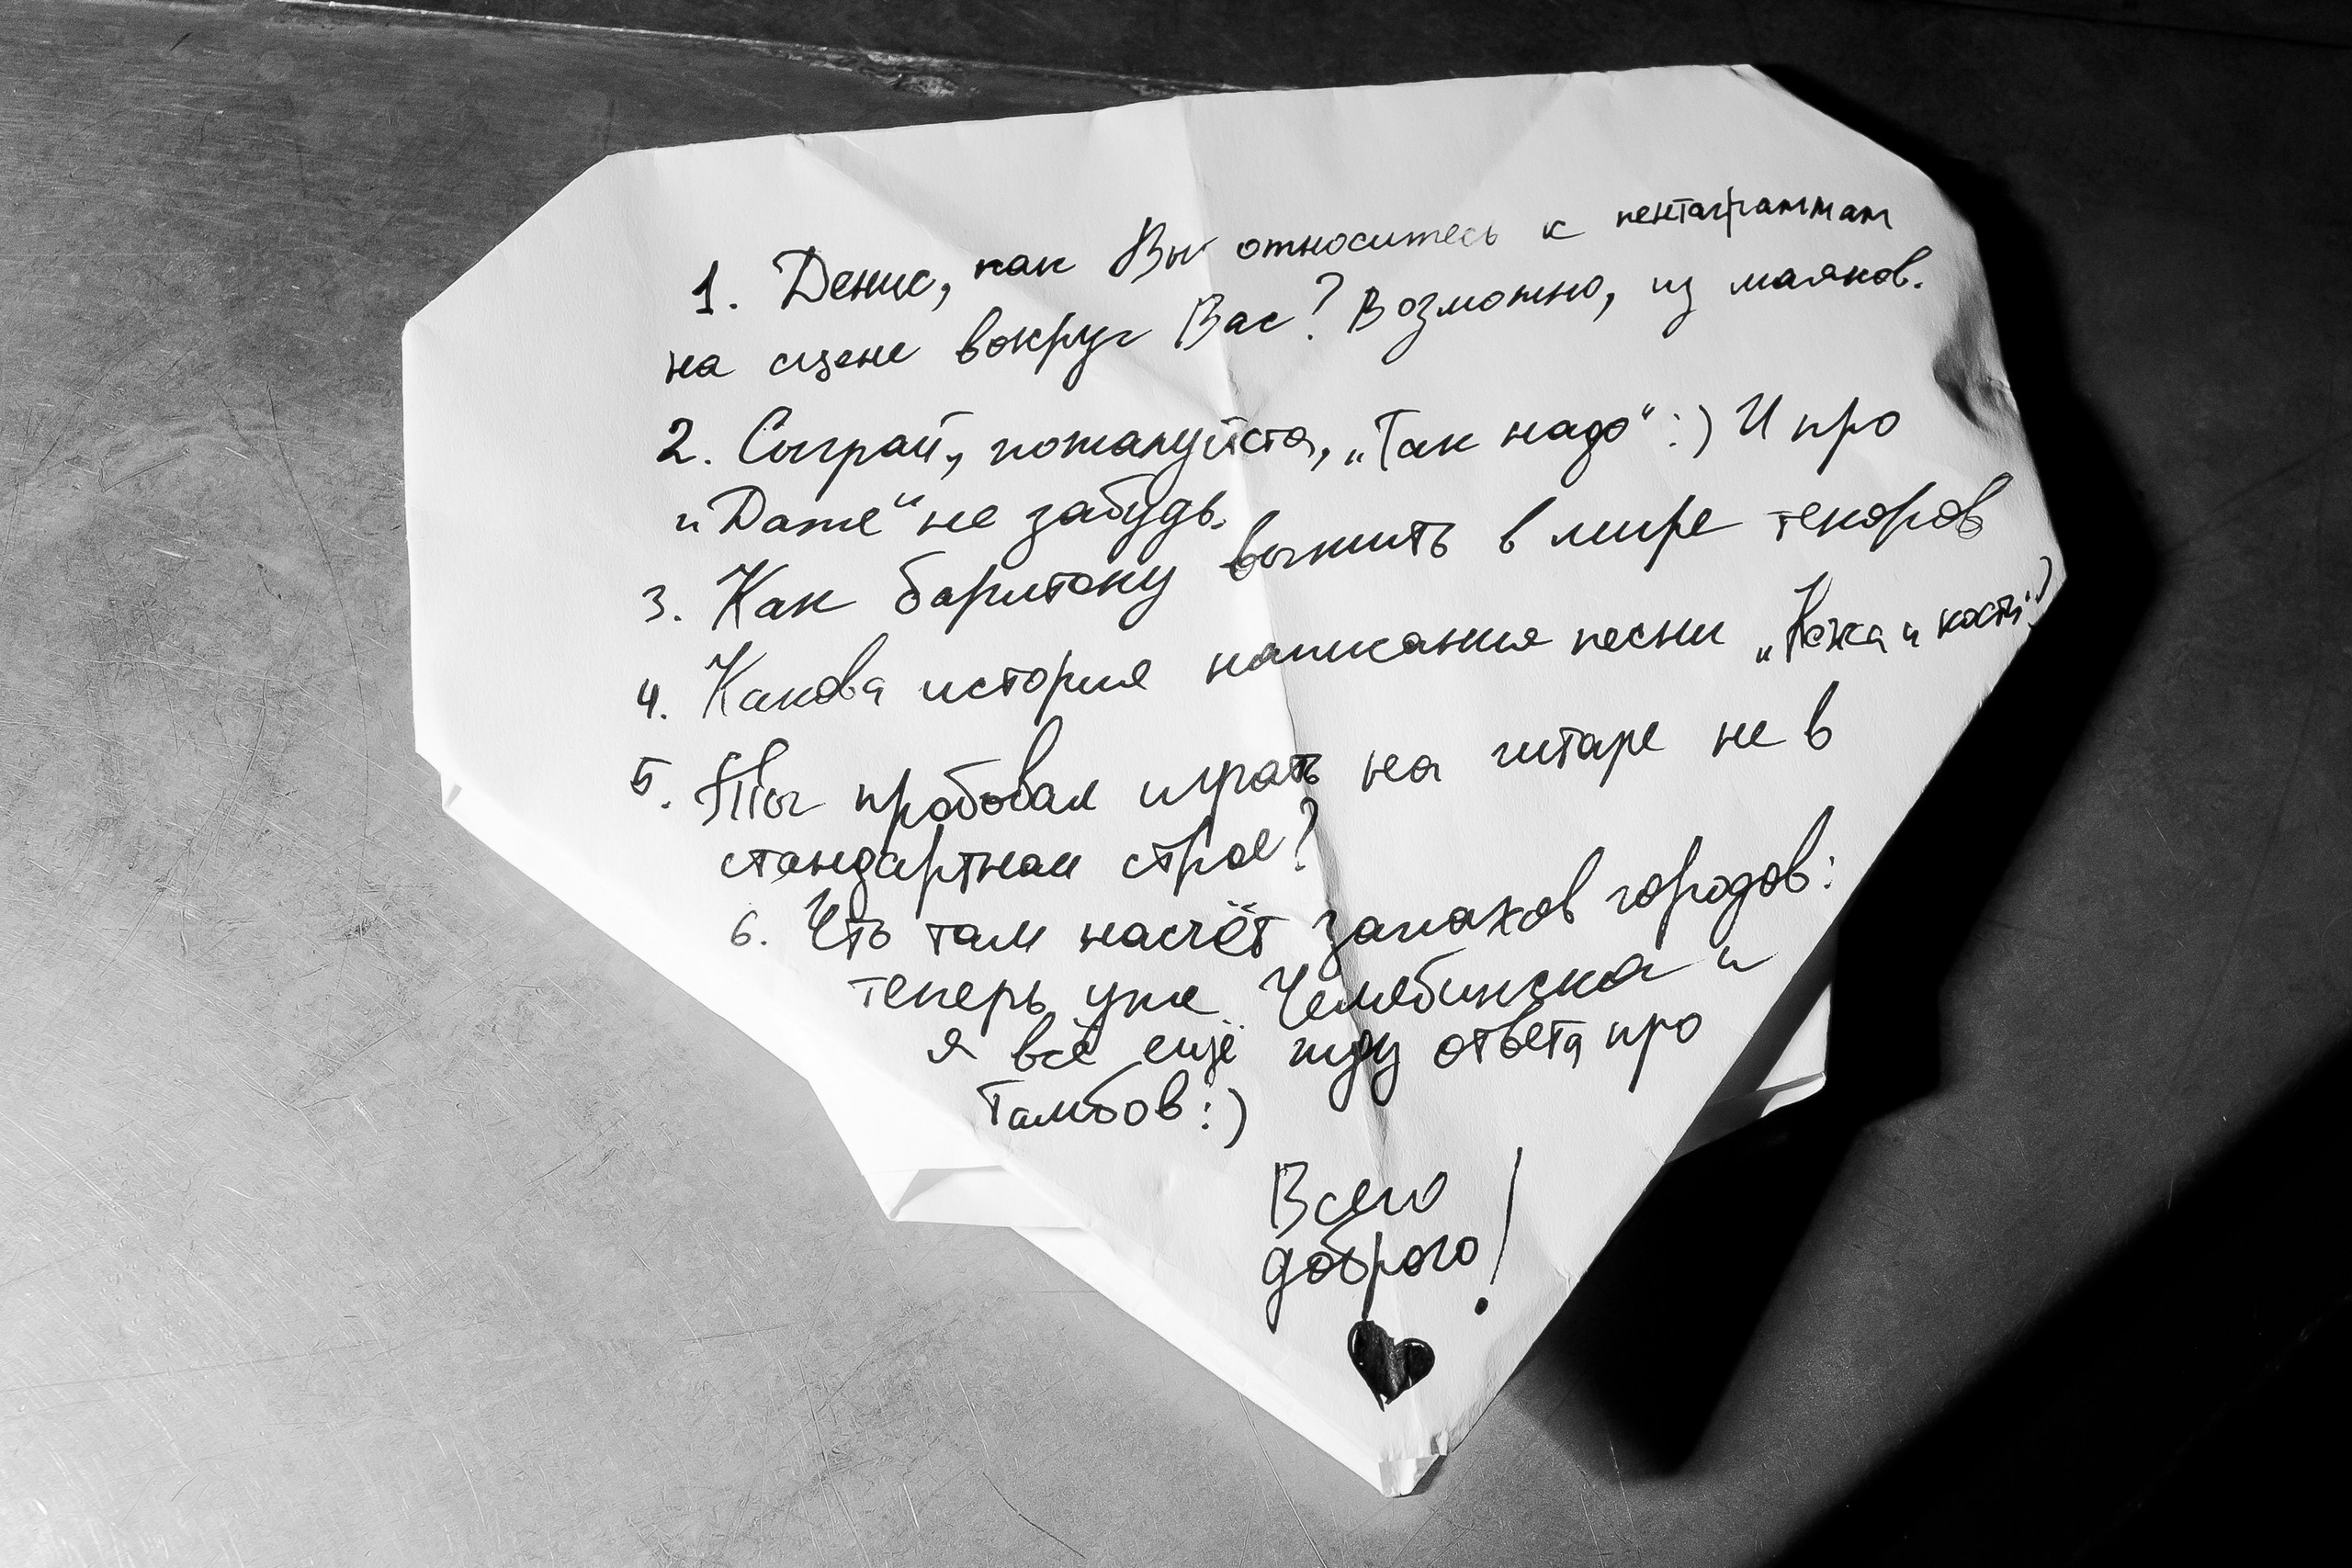 1. Денис, как Вы относитесь к пентаграммам
на сцене вокруг Вас? Возможно, из маяков.
2. Сыграй, пожалуйста, „Так надо“ :) И про
„Даже“ не забудь.
3. Как баритону выжить в мире теноров
4. Какова история написания песни „Кожа и кости“?
5. Ты пробовал играть на гитаре не в
стандартном строе?
6. Что там насчёт запахов городов:
теперь уже Челябинска и
я всё ещё жду ответа про
Тамбов :)
Всего
доброго!